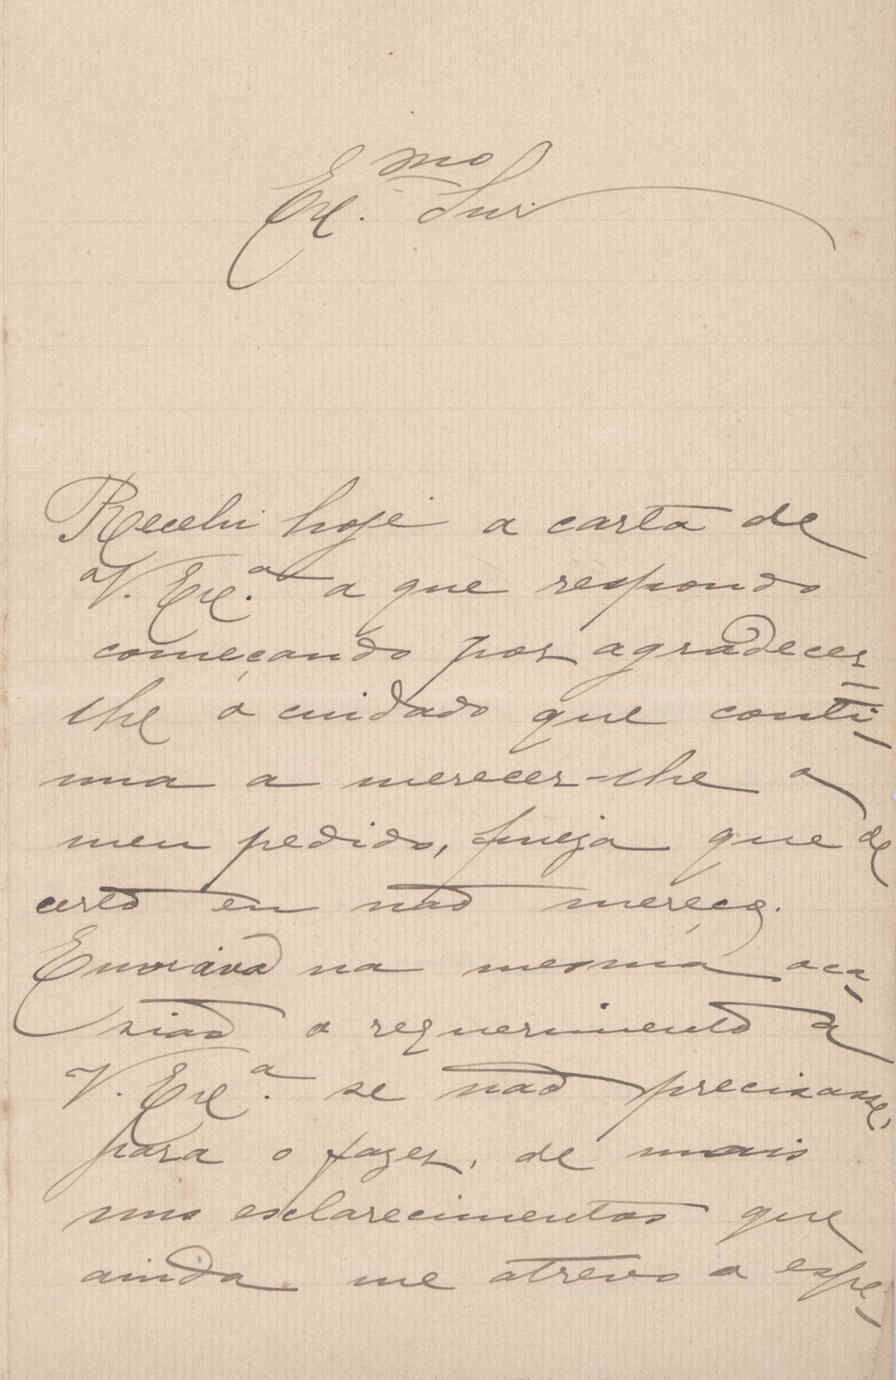 Ex.mo Snr
Recebi hoje a carta de
V. Ex.a a que respondo
começando por agradecer-
lhe o cuidado que conti-
nua a merecer-lhe o
meu pedido, fineza que de
certo eu não mereço.
Enviava na mesma oca-
sião o requerimento a
V. Ex.a se não precisasse,
para o fazer, de mais
uns esclarecimentos que
ainda me atrevo a espe-